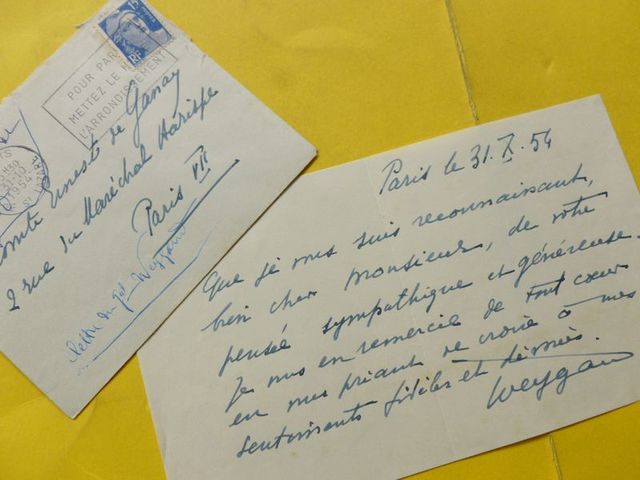 15F
RF
POUR PAR
METTEZ LE N
L'ARRONDISSEMENT
omte Ernest de Ganay
2 rue du Maréchal Harispe
Paris VII
Lettre du gal Weygand
Paris le 31.X.54
Que je vous suis reconnaissant,
bien cher Monsieur, de votre
pensée sympathique et généreuse.
Je vous en remercie de tout coeur
en vous priant de croire à mes
sentiments fidèles et dévoués.
Weygan